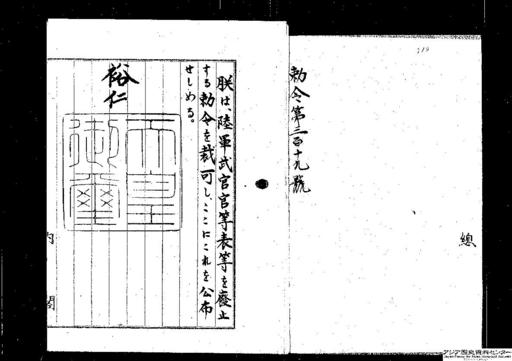 勅令第三百十九號
總
朕は、陸軍武官官等表等を廢止
する勅令を裁可し、ここにこれを公布
せしめる。
裕仁
天皇御璽
内閣
アジア歴史資料センター